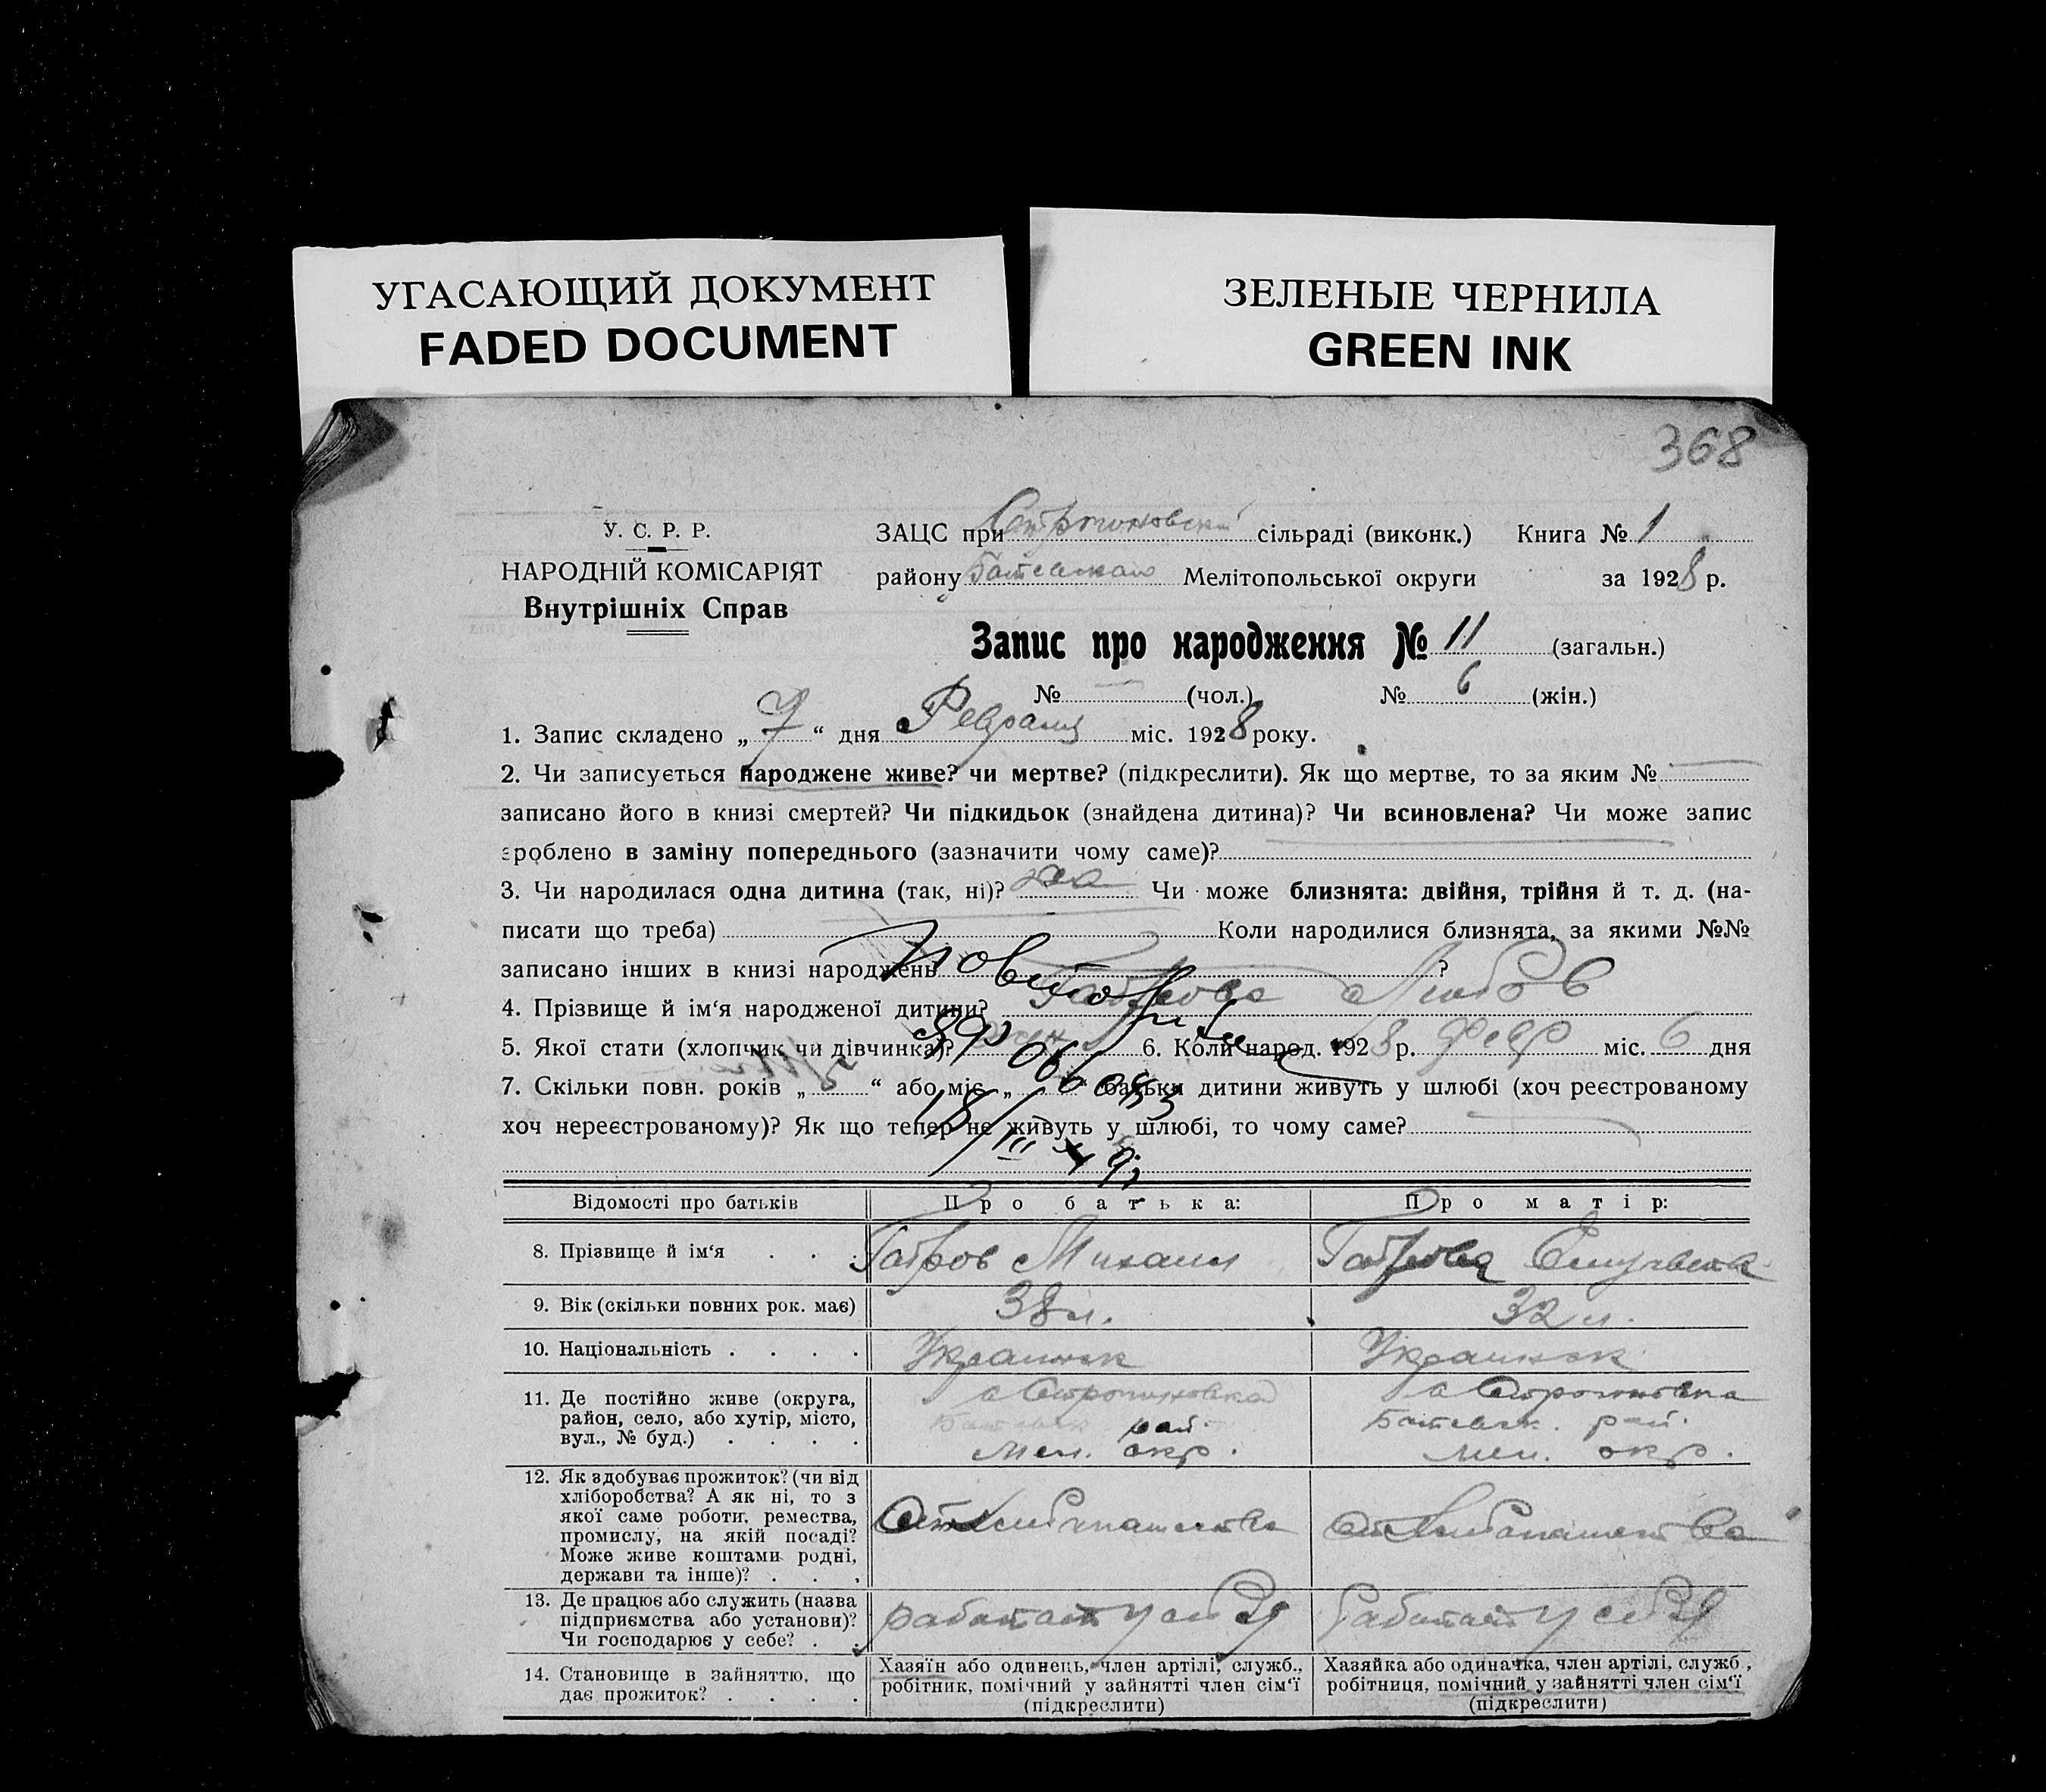 УГАСАЮЩИЙ ДОКУМЕНТ
FADED DOCUMENT
ЗЕЛЕНЫЕ ЧЕРНИЛА
GREEN INK
368
У. С. Р. Р.
НАРОДНІЙ КОМІСАРІЯТ
Внутрішніх Справ
ЗАЦС при сільраді (виконк.) Книга № 1
району Мелітопольської округи за 1928 р.
Запис про народження № 11 (загальн.)
№ — (чол.) № 6 (жін.)
1. Запис складено „ 7 “ дня Февраля міс. 1928 року.
2. Чи записується народжене живе? чи мертве? (підкреслити). Як що мертве, то за яким №
записано його в книзі смертей? Чи підкидьок (знайдена дитина)? Чи всиновлена? Чи може запис
зроблено в заміну попереднього (зазначити чому саме)?
3. Чи народилася одна дитина (так, ні)? Чи може близнята: двійня, трійня й т. д. (на-
писати що треба) Коли народилися близнята, за якими №№
записано інших в книзі народжень ?
4. Прізвище й ім‘я народженої дитини? Любов
5. Якої стати (хлопчик чи дівчинка)? 6. Коли народ. 1928 р. Февр міс. 6 дня
7. Скільки повн. років „ “ або міс. „ “ батьки дитини живуть у шлюбі (хоч реєстрованому
хоч нереєстрованому)? Як що тепер не живуть у шлюбі, то чому саме?
Відомості про батьків Про батька: Про матір:
8. Прізвище й ім‘я . . . Михаил
9. Вік (скільки повних рок. має) 38 л. 32 л.
10. Національність . . . . Украинск Украинск
11. Де постійно живе (округа,
район, село, або хутір, місто,
вул., № буд.) . . . .
рай. рай.
Мел. окр. Мел. окр.
12. Як здобуває прожиток? (чи від
хліборобства? А як ні, то з
якої саме роботи, ремества,
промислу, на якій посаді?
Може живе коштами родні,
держави та інше)? . . .
От хлебопашества От хлебопашества
13. Де працює або служить (назва
підприємства або установи)?
Чи господарює у себе? . .
работает у себя работает у себя
14. Становище в зайняттю, що
дає прожиток? . . . .
Хазяїн або одинець, член артілі, служб.,
робітник, помічний у зайнятті член сім‘ї
(підкреслити)
Хазяйка або одиначка, член артілі, служб.,
робітниця, помічний у зайнятті член сім‘ї
(підкреслити)